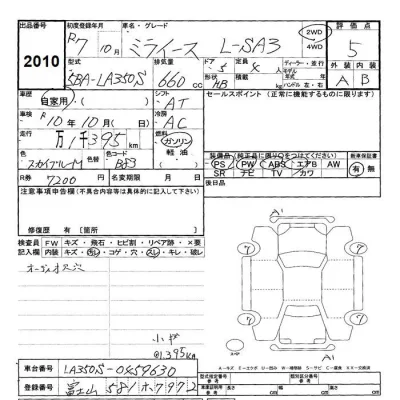 出品番号 初度登録年月 車名・グレード 2WD 4WD 評価点
2010 R7 10月 ミライース L-SA3 5
型式 排気量 ドア 定員 ディーラー・並行 外装 内装
5BA-LA350S 660 cc 5 4 A B
形状 HB 積載 kg モデル 年式 年 ハンドル 左・右
車歴 自家用 ( ) シフト AT
セールスポイント (正常に機能するものに限ります)
車検 R10年10月 日 冷房 AC
走行 万 千395 km 燃料 ガソリン 軽油
色 スカイブルーM 色替 色コード B83
装備品 (純正品に限り○をつけてください) 新車保証書
PS PW ABS エアB AW 有 無
SR ナビ TV カワ
R券 7200 名変期限 月 日 後日品
注意事項申告欄(不具合内容等は具体的に記入して下さい)
修復歴 有 [箇所
検査員記入欄 FW キズ・飛石・ヒビ割・リペア跡・×要
内装 キズ・汚レ・コゲ・穴・スレ・キレ・破レ
オーディオス穴
A1
7 7
7 7
A1
@1.395km
A-キズ E-エクボ U-凹み W-補修跡 S-サビ C-腐食 XX-交換済
車台番号 LA350S-0459630
登録番号 富士山 581 ホ 7972
型式指定番号 参考 類別区分番号 参考
長さ cm 幅 cm 高さ cm